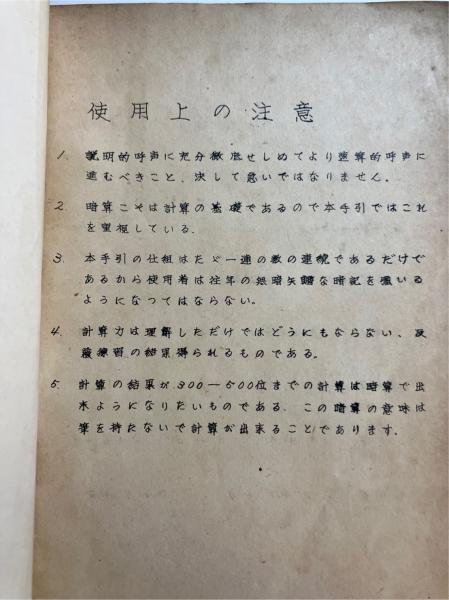 使用上の注意
1. 説明的呼声に充分徹底せしめてより速算的呼声に
進むべきこと、決して急いではなりません。
2. 暗算こそは計算の基礎であるので本手引ではこれ
を重視している.
3. 本手引の仕組はたゞ一連の数の連続であるだけで
あるから使用者は往年の無暗矢鱈な暗記を強いる
ようになつてはならない。
4. 計算力は理解しただけではどうにもならない、反
覆練習の結果得られるものである。
5. 計算の結果が、300—500位までの計算は暗算で出
来ようになりたいものである. この暗算の意味は
筆を持たないで計算が出来ることであります.